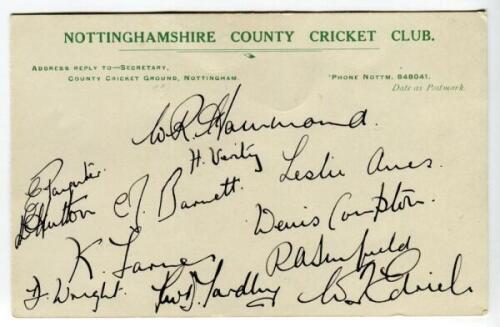 NOTTINGHAMSHIRE COUNTY CRICKET CLUB.
ADDRESS REPLY TO—SECRETARY,
COUNTY CRICKET GROUND, NOTTINGHAM.
'PHONE NOTTM. 848041.
Date as Postmark.
W.R. Hammond.
H. Verity
Leslie Ames.
E Paynter
C.J. Barnett.
L Hutton
Denis Compton.
K. Farnes
RA Sinfield
D. Wright.
N.W.D. Yardley
W J Edrich